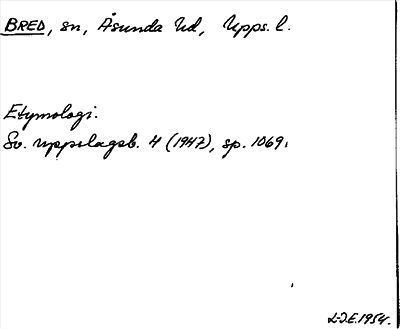 BRED, sn, Åsunda hd, Upps. l.
Etymologi.
Sv. uppslagsb. 4 (1947), sp. 1069.
L-J.E. 1954.